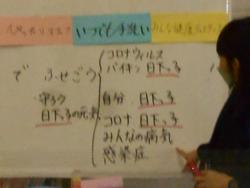 いつでも手洗い
コロナウィルス
バイキン 日下っ子
で ふせごう
守ろう 自分 日下っ子
日下っ子の元気
コロナ 日下っ子
みんなの病気
感染症